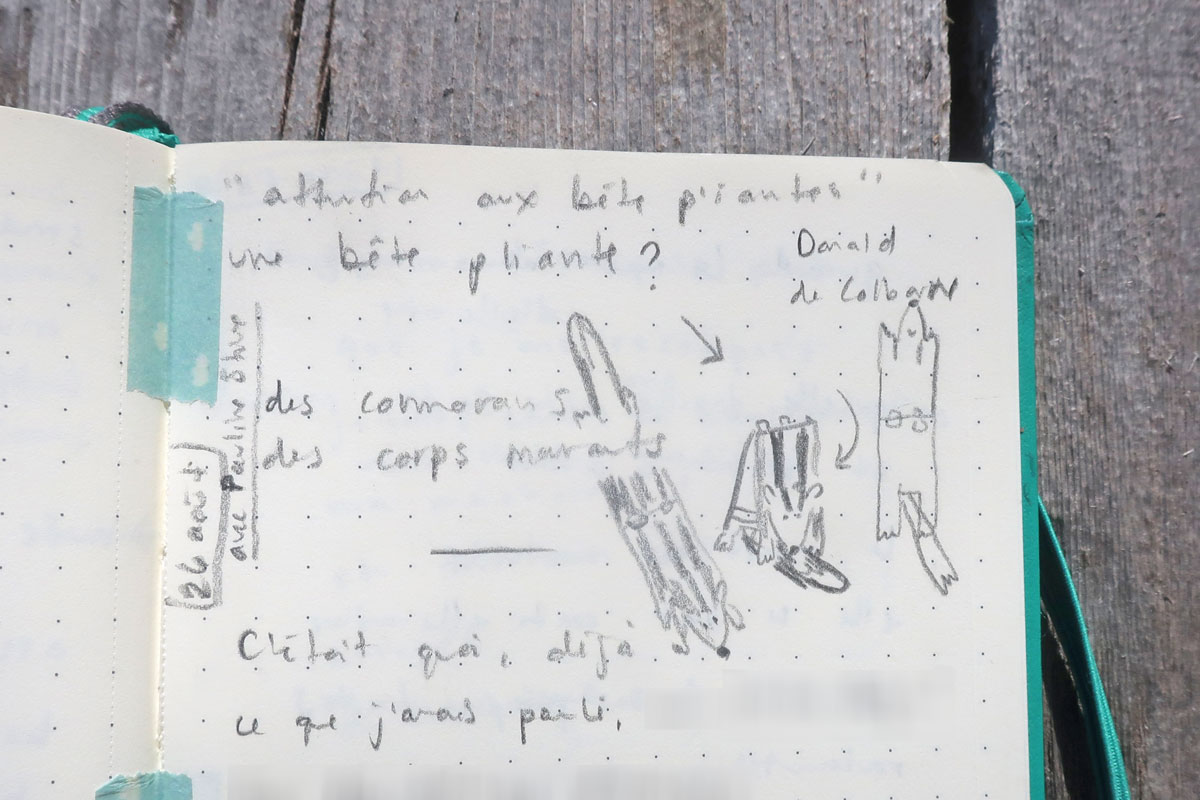 "attention aux bête pliantes"
une bête pliante ?
Donald
de
26 août
avec Pauline
des cormorans
des corps marants
C'était quoi, déjà
ce que j'avais